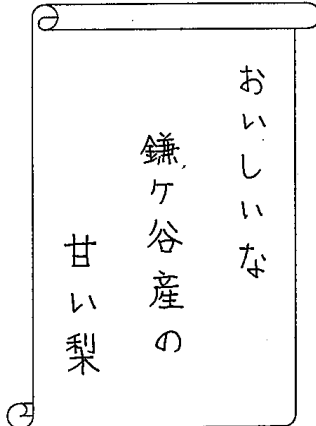 おいしいな
鎌ケ谷産の
甘い梨